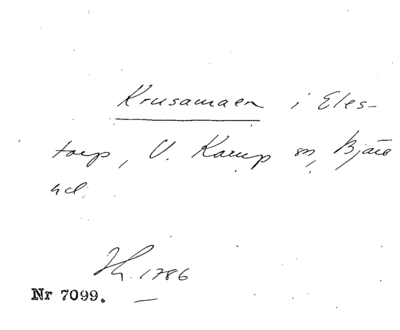 Krusamaen i Eles-
torp, V. Karup sn, Bjäre
hd.
Hh. 1786
Nr 7099.